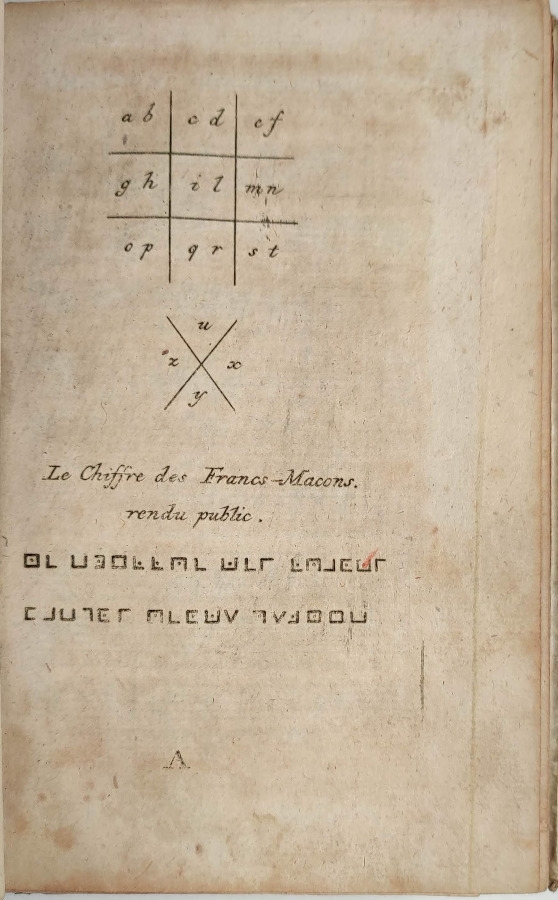 a b c d e f
g h i l m n
o p q r s t
u
z x
y
Le Chiffre des Francs-Macons.
rendu public.
A